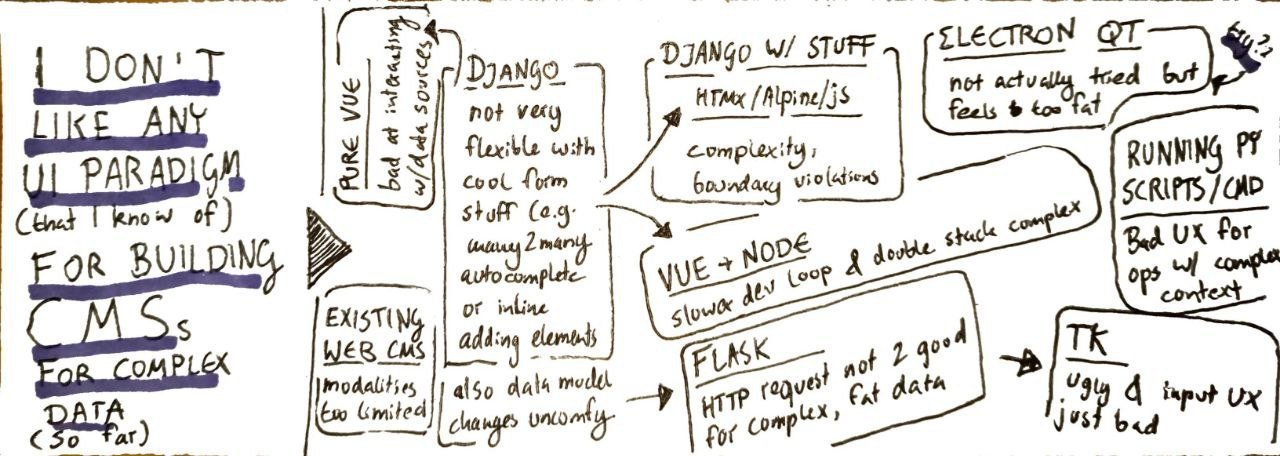 I DON'T
LIKE ANY
UI PARADIGM
(that I know of)
FOR BUILDING
CMSs
FOR COMPLEX
DATA
(So far)
PURE VUE
bad at interacting
w/data sources
EXISTING
WEB CMS
modalities
too limited
DJANGO
not very
flexible with
cool form
stuff (e.g.
many2many
autocomplete
or inline
adding elements
also data model
changes uncomfy
DJANGO W/ STUFF
HTMX/Alpine/js
complexity,
boundary violations
VUE + NODE
slower dev loop & double stack complex
FLASK
HTTP request not 2 good
for complex, fat data
ELECTRON QT
not actually tried but
feels too fat
RUNNING PY
SCRIPTS/CMD
Bad UX for
ops w/ complex
context
TK
ugly & input UX
just bad